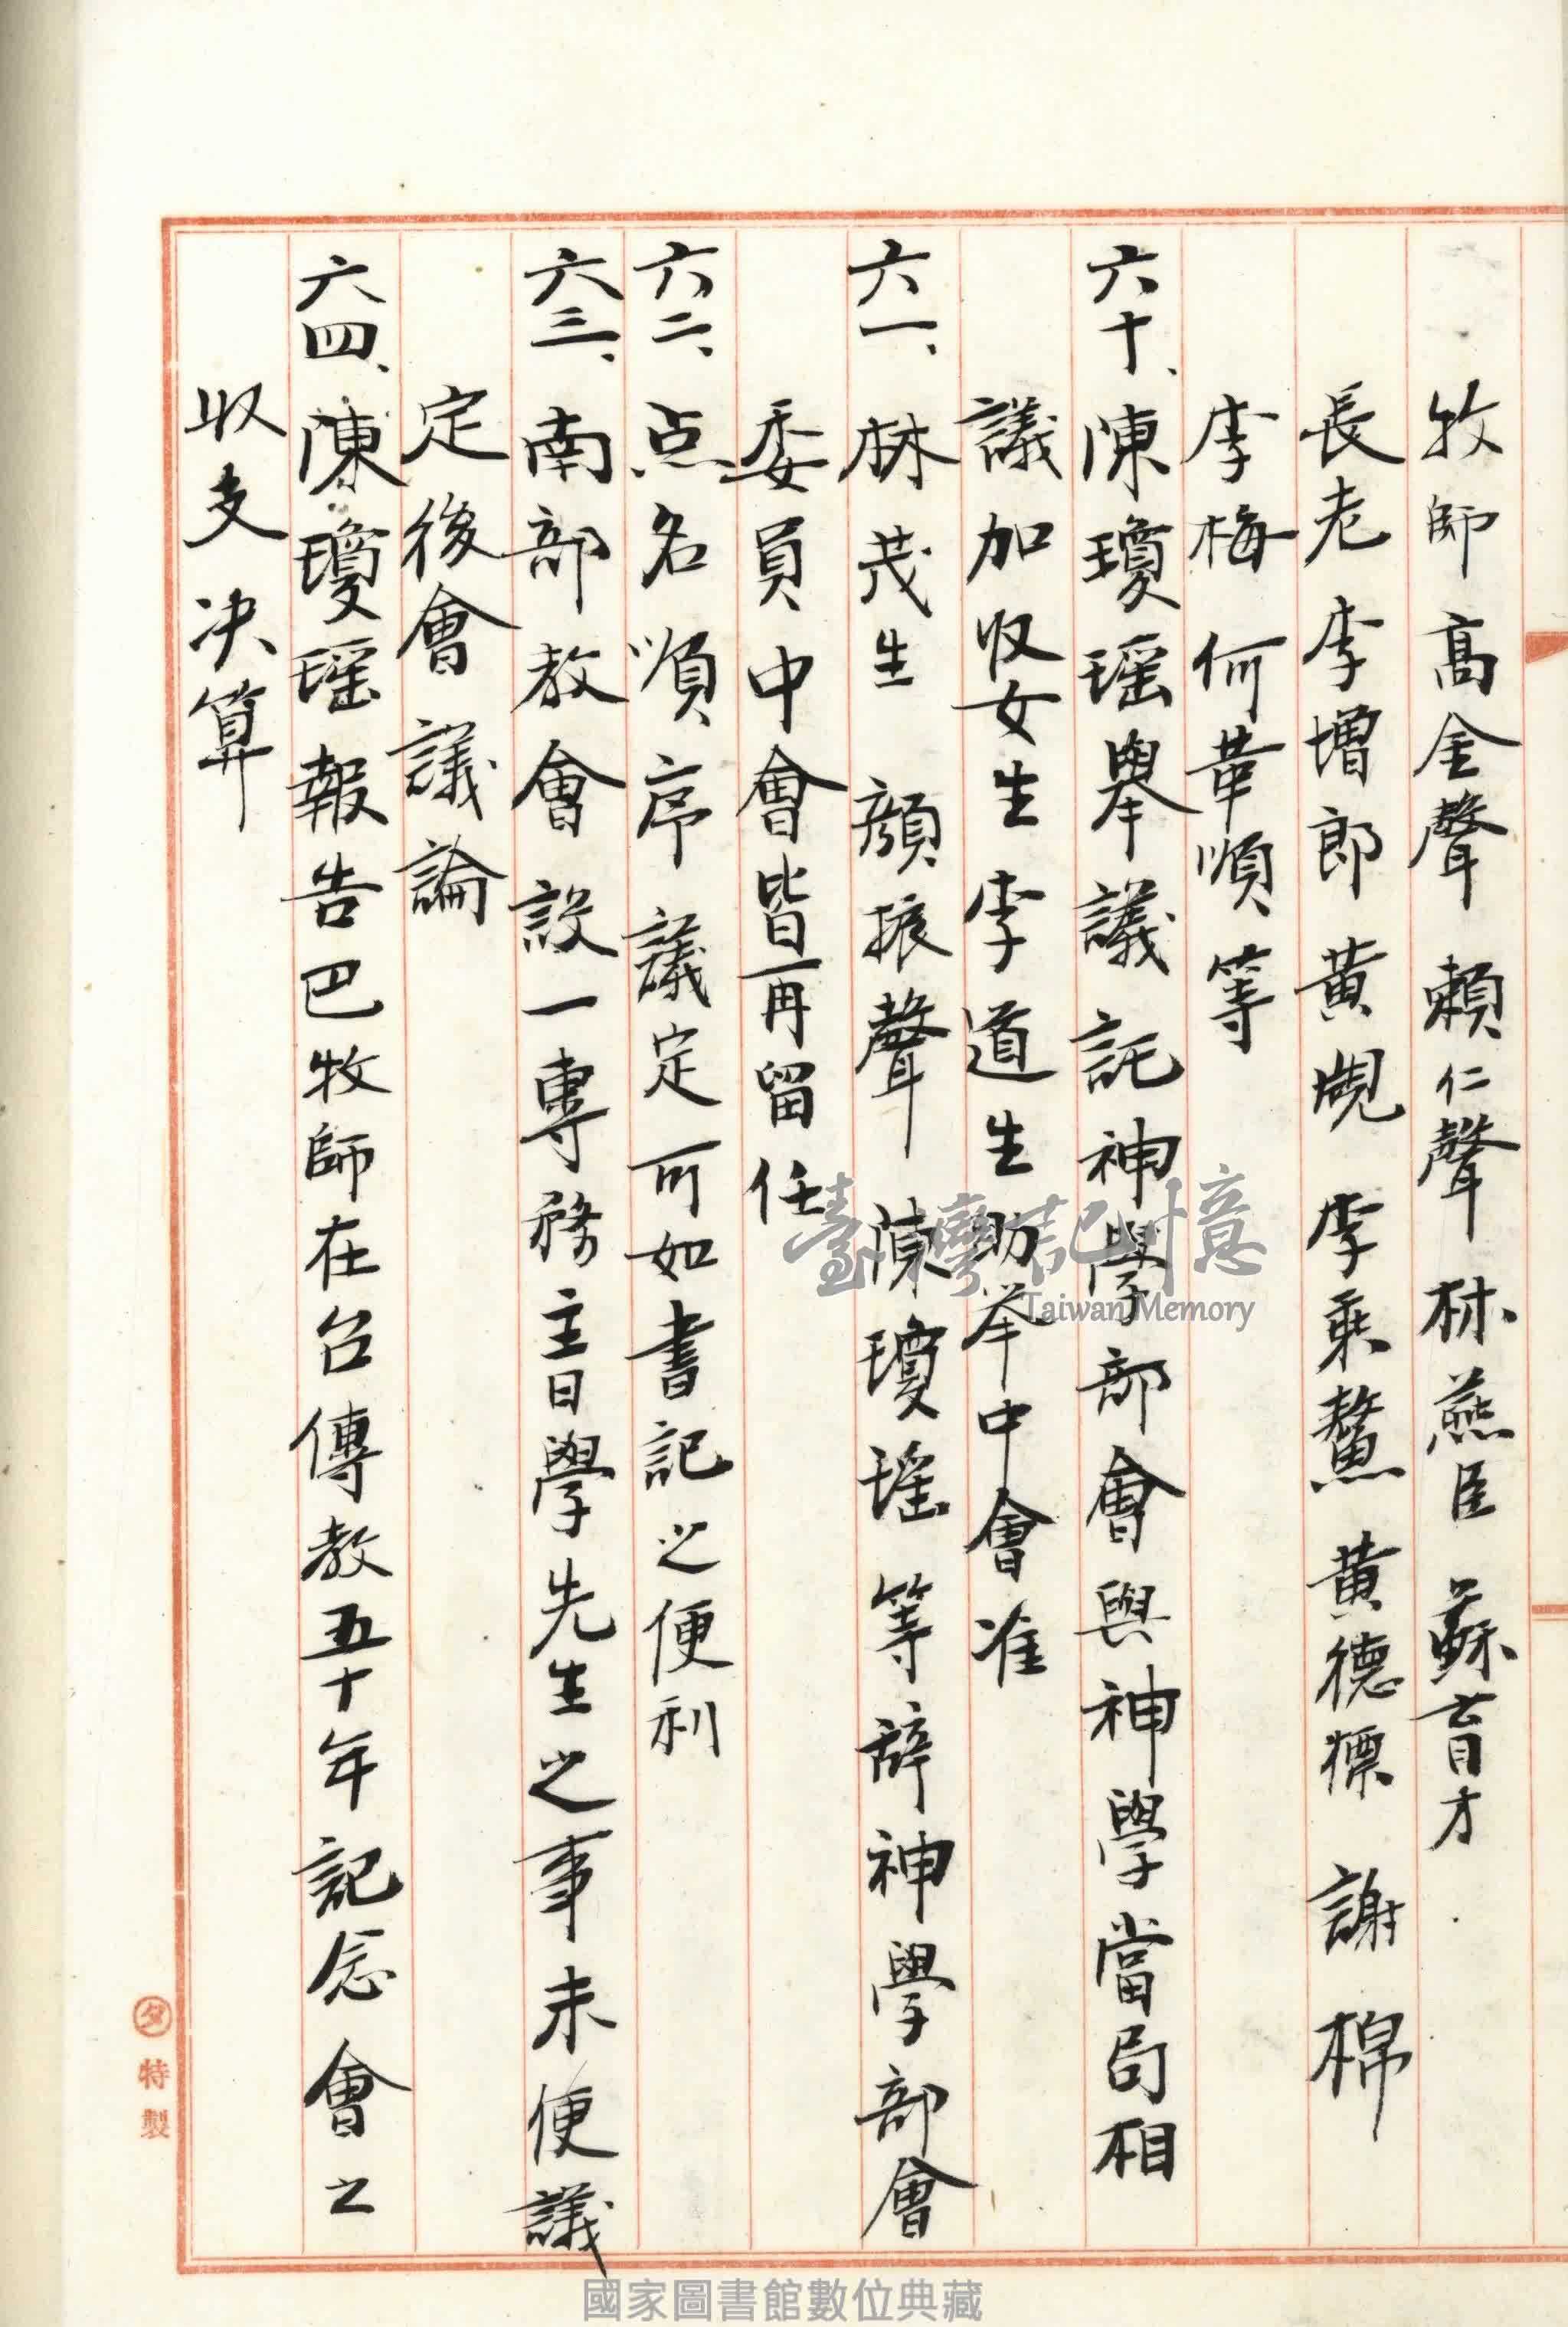 牧師 高金聲 賴仁聲 林燕臣 蘇育才
長老 李增郎 黃覘 李秉鰲 黃德標 謝棉
李梅 何華順等
六十、陳瓊瑤舉議託神學部會與神學當局相
議加収女生李道生助举中會准
六一、林茂生 顏振聲 陳瓊瑤等辞神學部會
委員中會皆再留任
六二、点名順序議定可如書記之便利
六三、南部教會設一專務主日學先生之事未便議
定後會議論
六四、陳瓊瑤報告巴牧師在台傳教五十年記念會之
収支决算
特製
臺灣記憶
Taiwan Memory
國家圖書館數位典藏